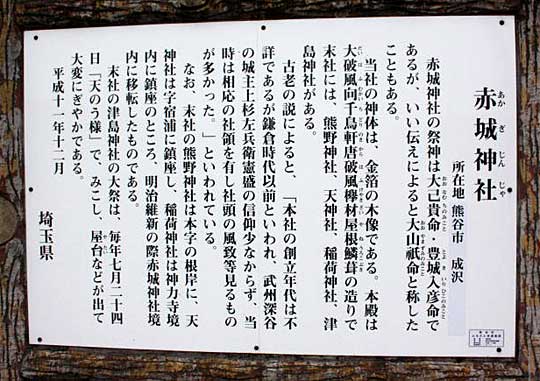 赤城神社
あかぎじんじゃ
所在地 熊谷市 成沢
赤城神社の祭神は大己貴命、豊城入彦命で
あるが、いい伝えによると大山祇命と称した
こともある。
当社の神体は、金箔の木像である。本殿は
大破風向千鳥軒唐破風欅材屋根鱗葺の造りで
末社には、熊野神社、天神社、稲荷神社、津
島神社がある。
古老の説によると、「本社の創立年代は不
詳であるが鎌倉時代以前といわれ、武州深谷
の城主上杉左兵衛憲盛の信仰少なからず、当
時は相応の社領を有し社頭の風致等見るもの
が多かった。」といわれている。
なお、末社の熊野神社は本字の根岸に、天
神社は字宿浦に鎮座し、稲荷神社は神力寺境
内に鎮座のところ、明治維新の際赤城神社境
内に移転したものである。
末社の津島神社の大祭は、毎年七月二十四
日「天のう様」で、みこし、屋台などが出て
大変にぎやかである。
平成十一年十二月
埼玉県